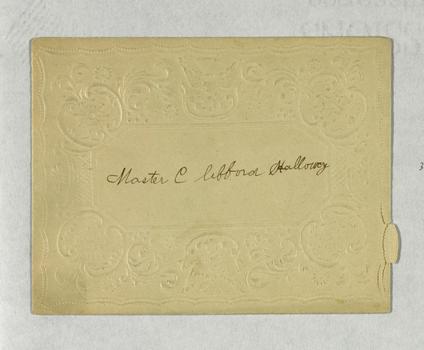 Master C lifford Halloway
3